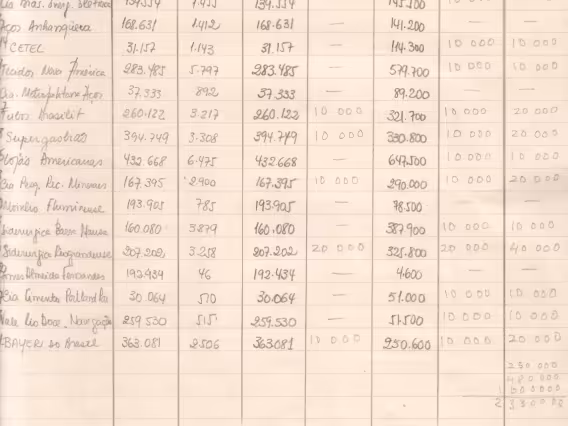 134.554 1.455 134.554 145.500
Aços Anhanguera 168.631 1.412 168.631 — 141.200 — —
CETEL 31.157 1.143 31.157 — 114.300 10 000 10 000
Tecidos Nova América 283.485 5.797 283.485 — 579.700 10 000 10 000
Cia. Metropolitana Aços 37.333 892 37.333 — 89.200 — —
Tubos Brasilit 260.122 3.217 260.122 10 000 321.700 10 000 20 000
Supergasbras 394.749 3.308 394.749 10 000 330.800 10 000 20 000
Lojas Americanas 432.668 6.475 432.668 — 647.500 10 000 10 000
Cia Mineraes 167.395 2.900 167.395 10 000 290.000 10 000 20 000
Moinho Fluminense 193.905 785 193.905 — 78.500 — —
Siderurgica Barra Mansa 160.080 3.879 160.080 — 387.900 10 000 10 000
Siderurgica Riograndense 207.202 3.258 207.202 20 000 325.800 20 000 40 000
Almeida Fernandes 192.434 46 192.434 — 4.600 — —
Cia Cimento Portland 30.064 510 30.064 — 51.000 10 000 10 000
Vale Rio Doce. Navegação 259.530 515 259.530 — 51.500 10 000 10 000
BAYER do Brasil 363.081 2506 363.081 10 000 250.600 10 000 20 000
250 000
480 000
1 600 000
2 330 000